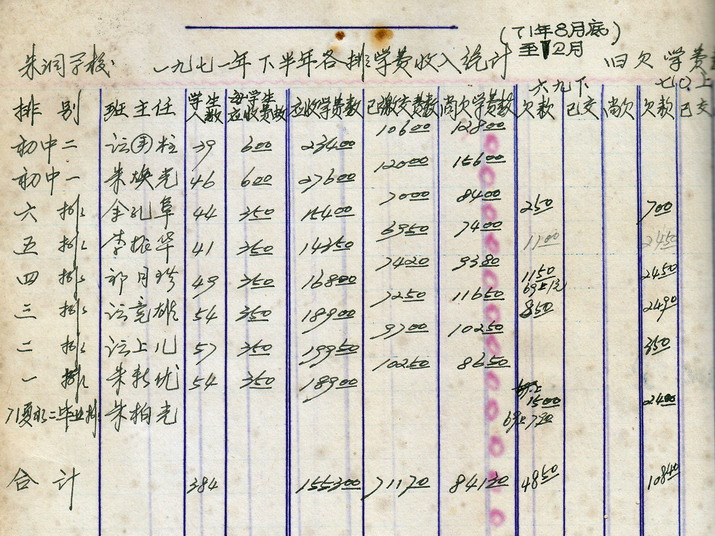 (71年8月底
至12月)
朱洞学校 一九七一年下半年各排学费收入统计 旧欠学费
六九下 七〇上
排别 班主任 学生人数 每学生应收费数 应收学费数 已缴交费数 尚欠学费数 欠款 已交 尚欠 欠款 已交
初中二 39 600 23400 10600 12800
初中一 朱焕光 46 600 27600 12000 15600
六排 余孔阜 44 350 15400 7000 8400 250 700
五排 李振华 41 350 14350 6950 7400 1100 2450
四排 祁月珍 49 350 16800 7420 9380 1150 2450
三排 54 350 18900 7250 11650 69上 850 2490
二排 57 350 19950 9700 10250 350
一排 54 350 18900 10250 8650
朱柏光 1500 2400
69上
合计 384 155300 71170 84130 4850 10840